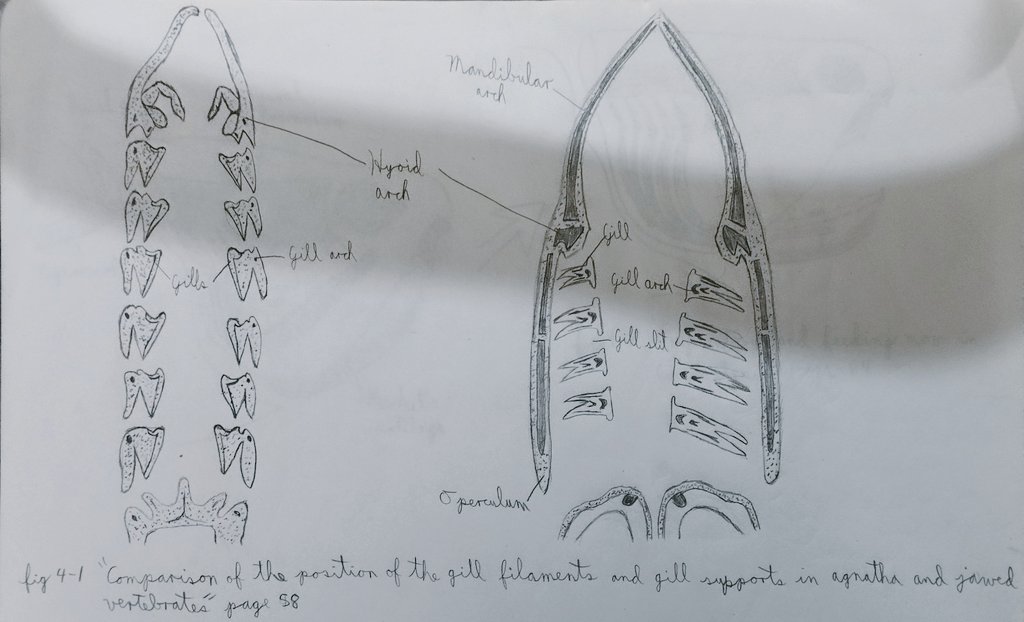 Mandibular
arch
Hyoid
arch
Gill
Gill arch
Gills
Gill arch
Gill slit
Operculum
fig 4-1 "Comparison of the position of the gill filaments and gill supports in agnatha and jawed
vertebrates" page 58